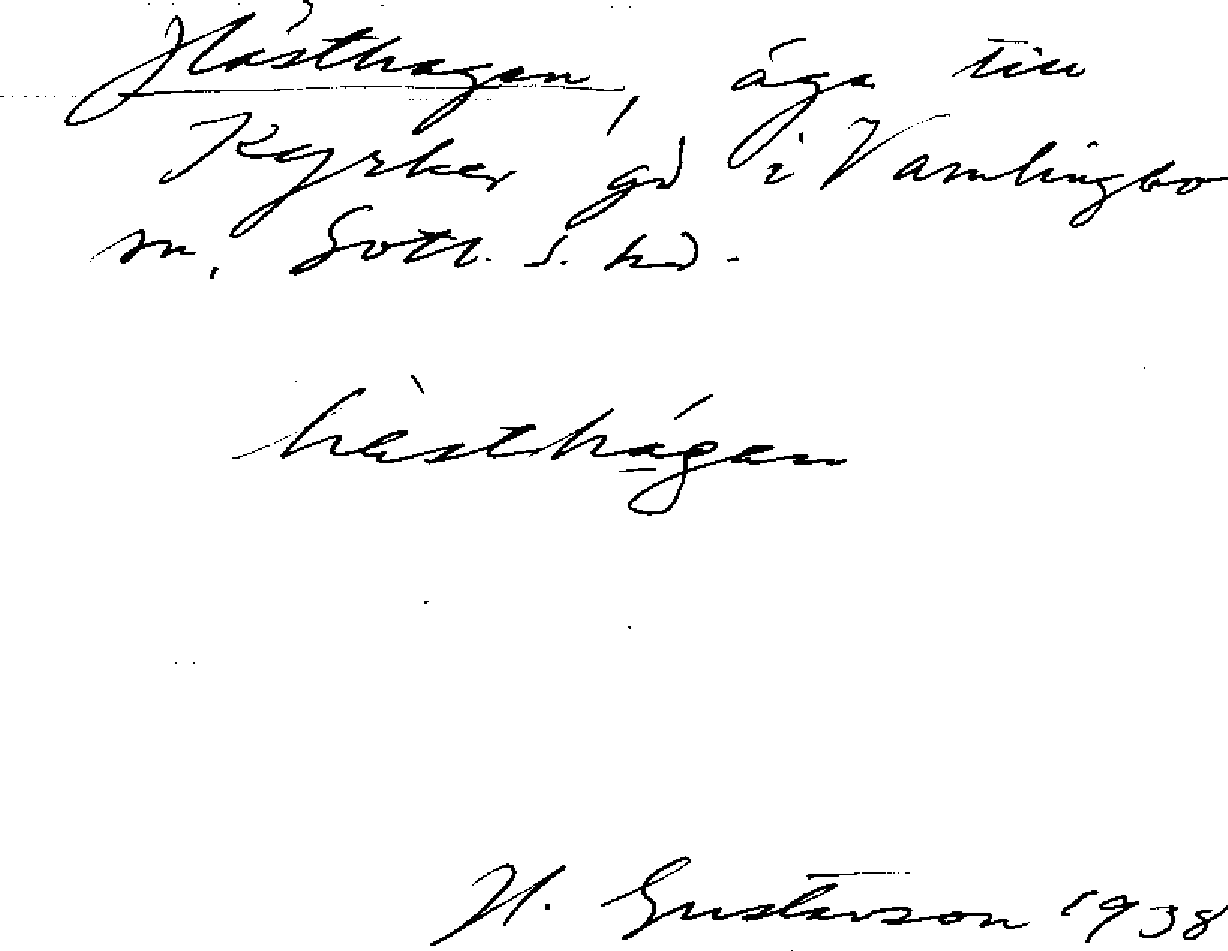 Hästhagen, äga till
Kyrkes gd i Vamlingbo
sn, Gotl. s. hd.
hàsthágan
H. Gustavson 1938